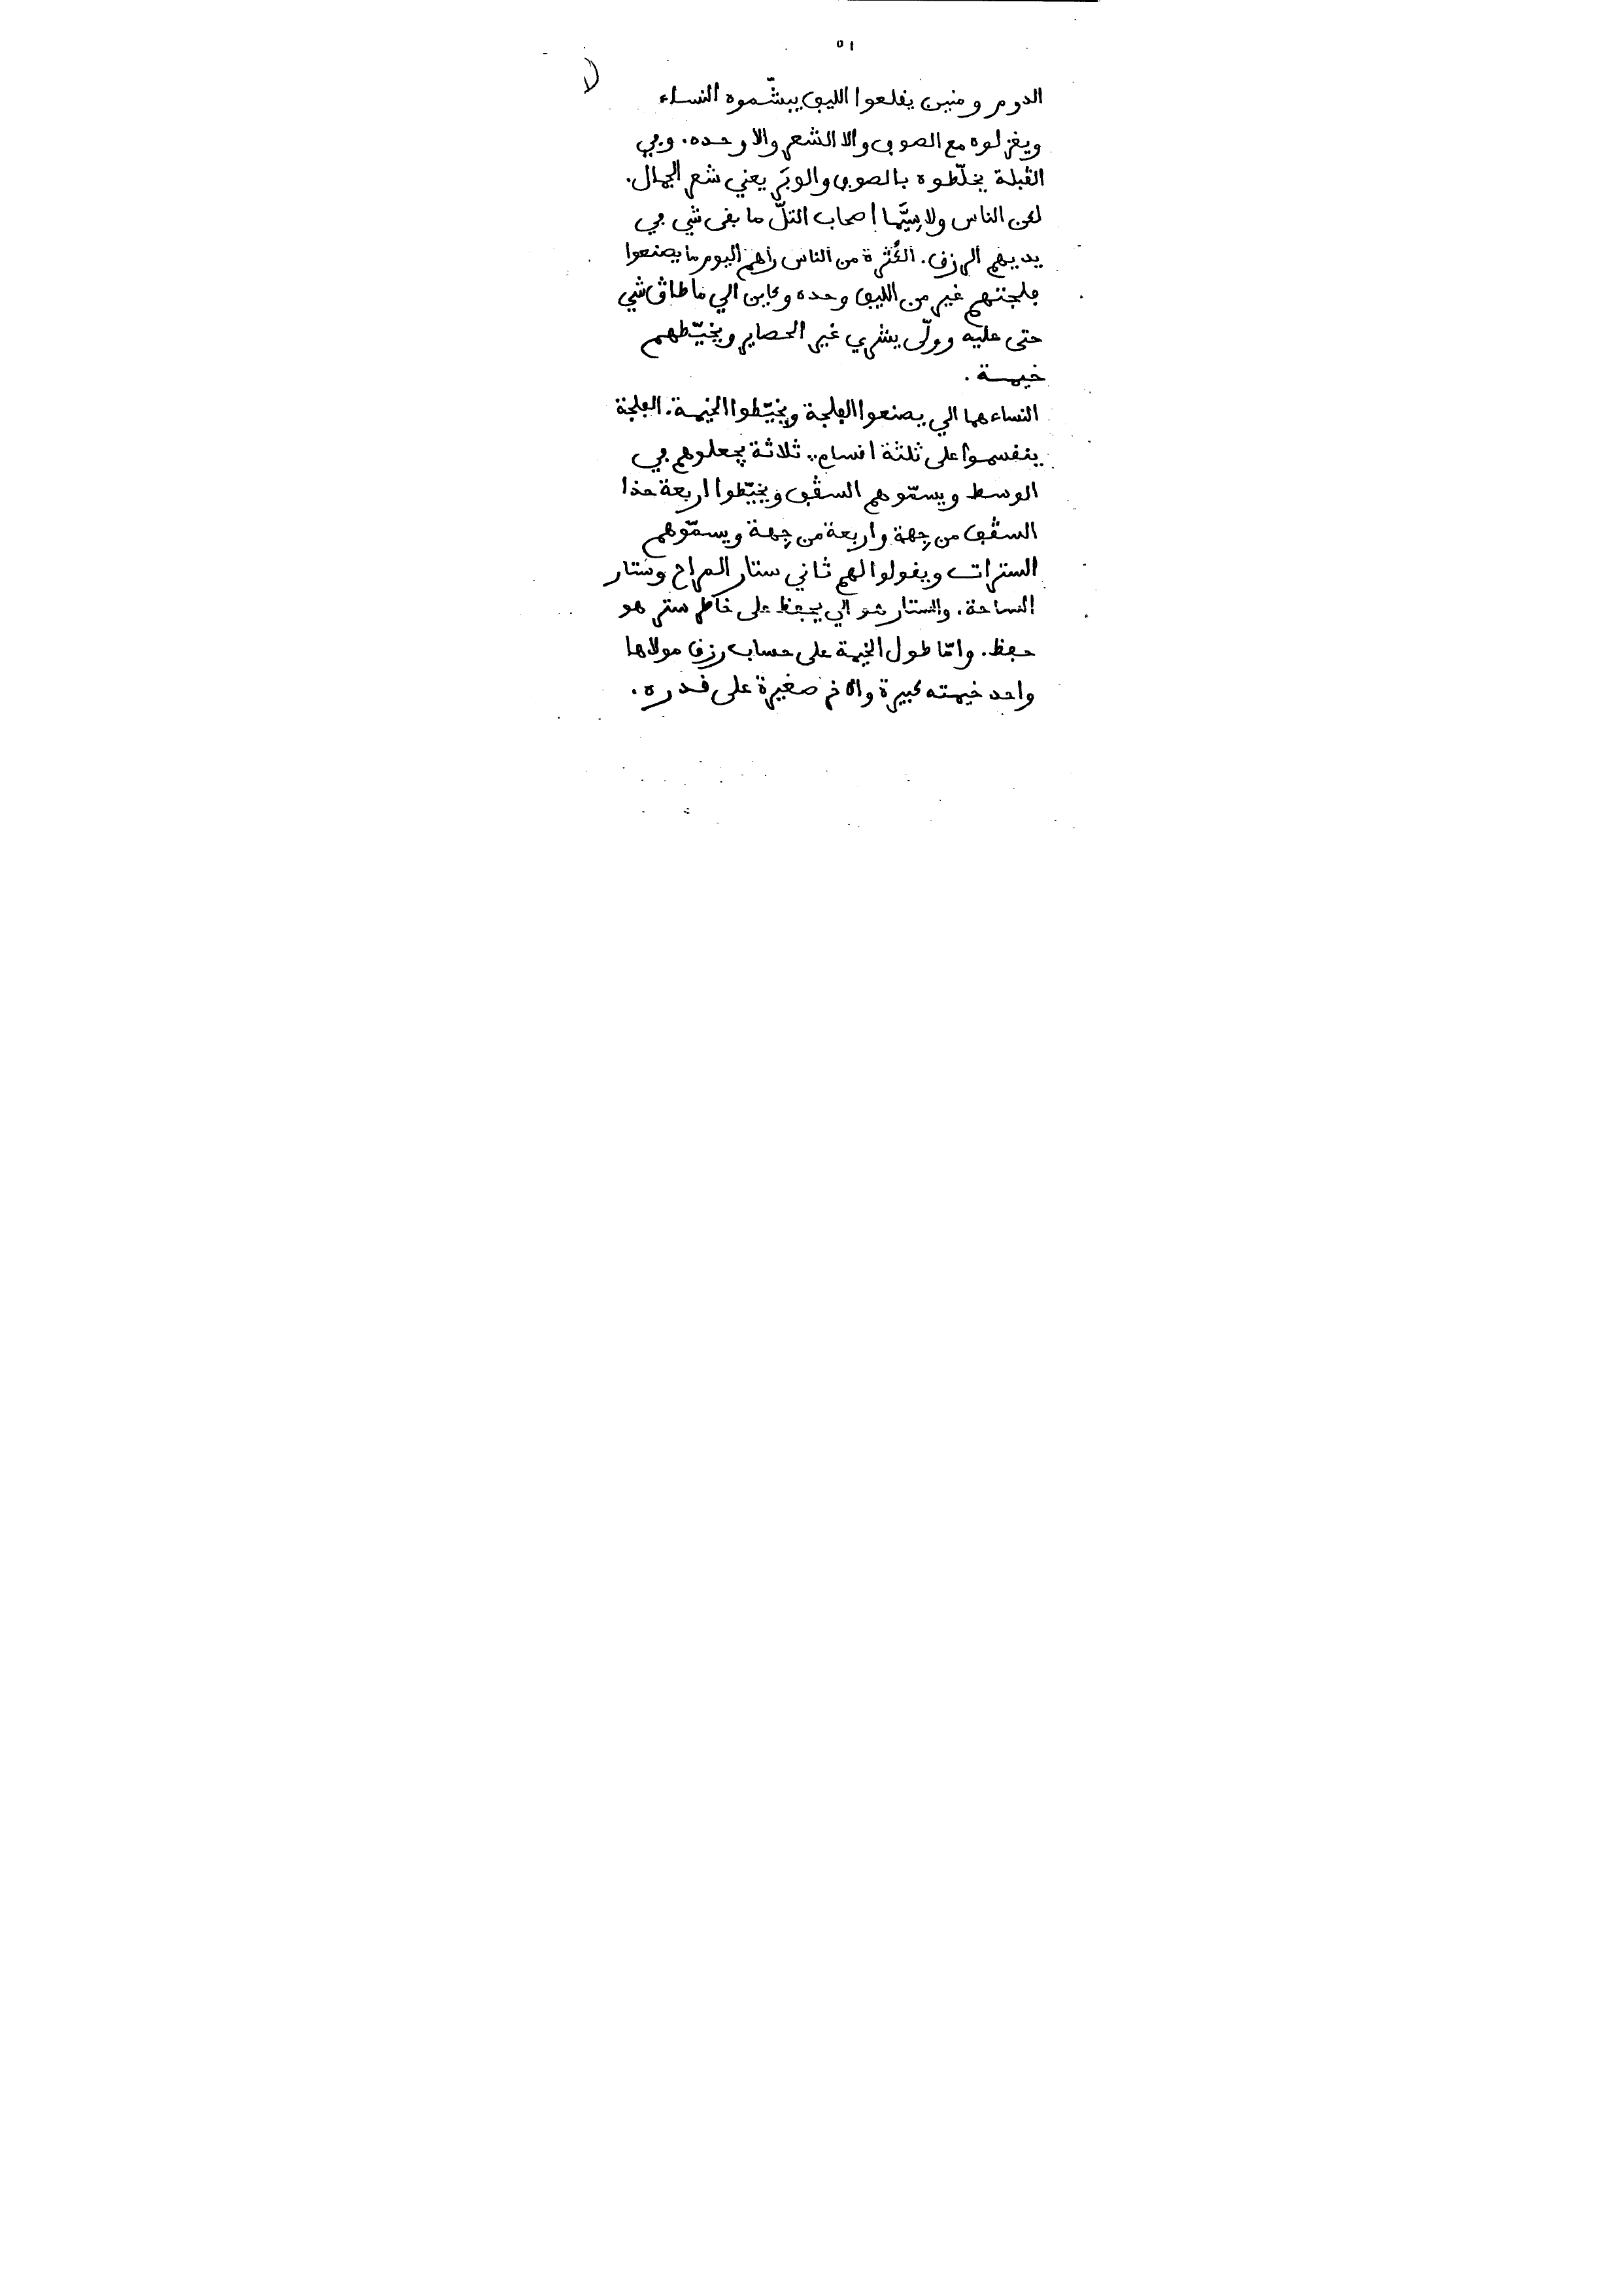 ٥١
الدوم ومنين يقلعوا الليف يبشّموه النساء
ويغزلوه مع الصوف والا الشعر والا وحده. وفي
الڨبلة يخلّطوه بالصوف والوبَر يعني شعر الجمال.
لكن الناس ولا سِيَّما أصحاب التلّ ما بقى شي في
يديهم الرزق. الكُثرة من الناس راهم اليوم ما يصنعوا
فلجتهم غير من الليف وحده وكاين الي ما طاڨ شي
حتى عليه وولّى يشري غير الحصاير ويخيّطهم
خيمة.
النساء هما الي يصنعوا الفلجة ويخيّطوا الخيمة. الفلجة
ينقسموا على ثلثة اقسام.. ثلاثة يجعلوهم في
الوسط ويسمّوهم السڨف ويخيّطوا اربعة حذا
السڨف من جِهة واربعة من جِهة ويسمّوهم
السترات ويقولوا لهم ثاني ستار المراح وستار
الساحة. والستار هو الي يحفظ على خاطر ستر هو
حفظ. وامّا طول الخيمة على حساب رزق مولاها
واحد خيمته كبيرة والاخر صغيرة على قدره.